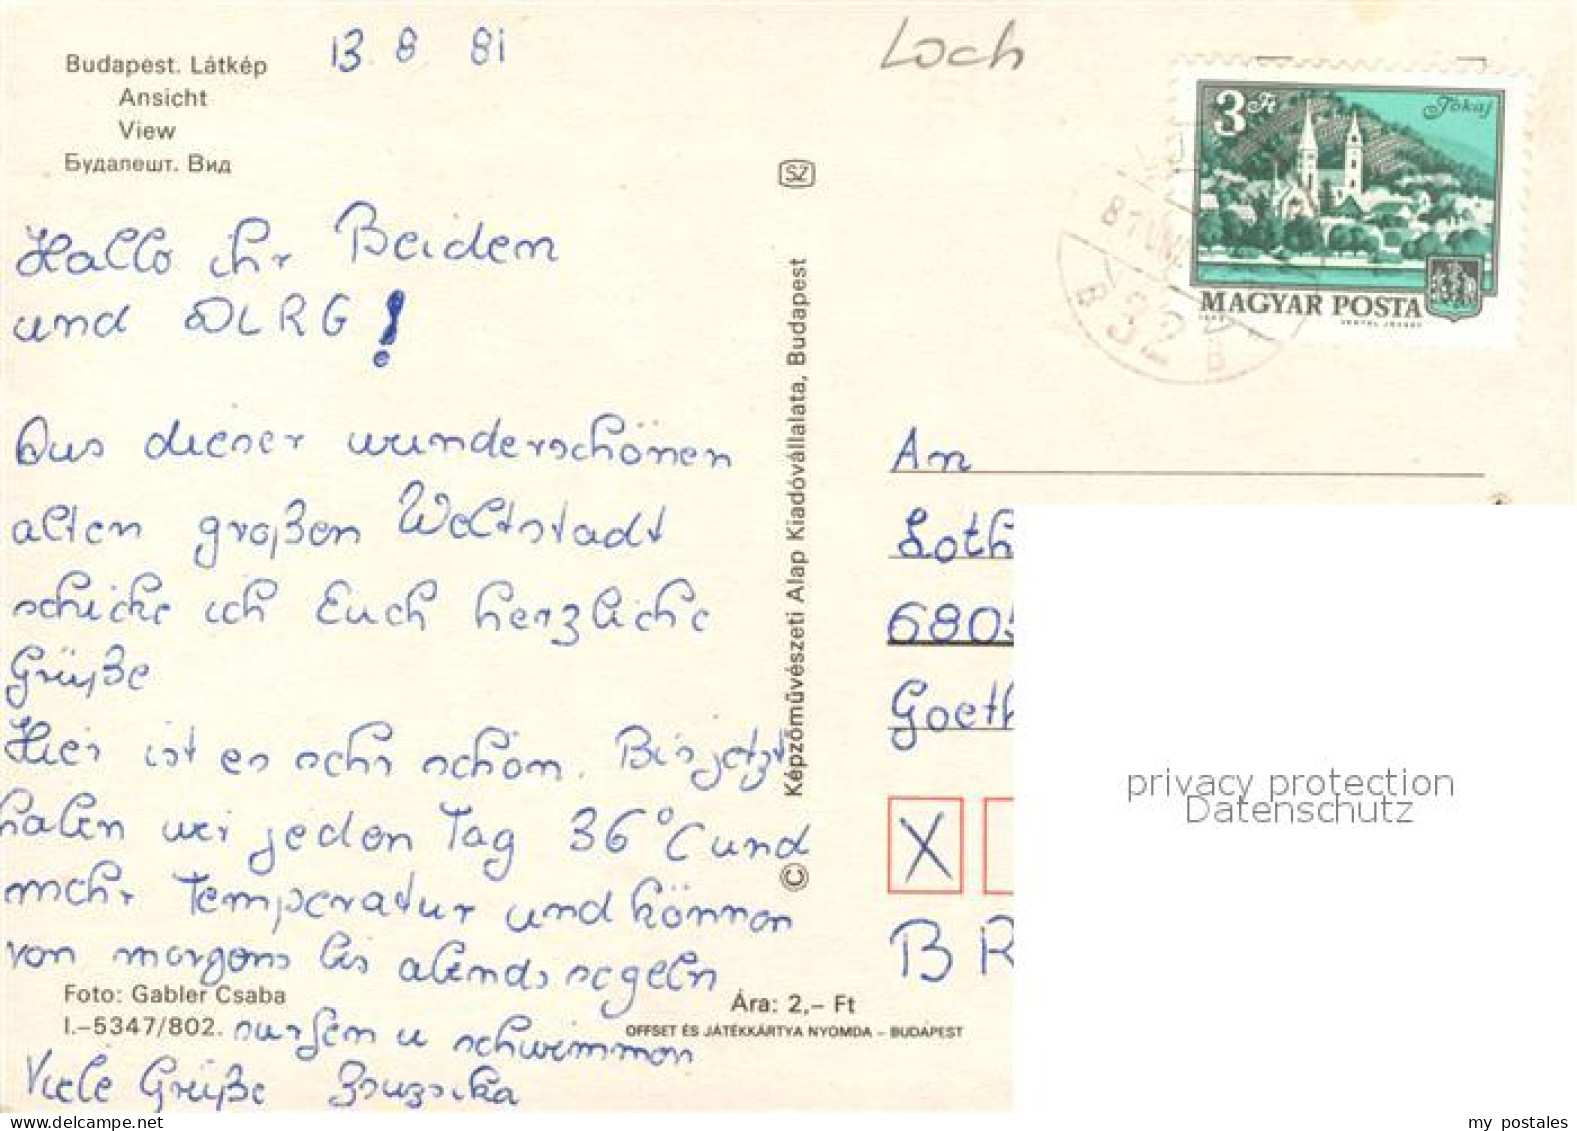 Budapest. Látkép
Ansicht
View
Будапешт. Вид
13. 8. 81
Hallo ihr Beiden
und DLRG!
Aus dieser wunderschönen
alten großen Weltstadt
schicke ich Euch herzliche
Grüße
Hier ist es sehr schön. Bis jetzt
haben wir jeden Tag 36°C und
mehr Temperatur und können
von morgens bis abends segeln
surfen u schwimmen
Viele Grüße Zsuzsika
Foto: Gabler Csaba
I.–5347/802.
Ára: 2,– Ft
OFFSET ÉS JÁTÉKKÁRTYA NYOMDA – BUDAPEST
SZ
© Képzőművészeti Alap Kiadóvállalata, Budapest
Loch
3 Ft
Tokaj
MAGYAR POSTA
VERTEL JÓZSEF
B 32 B
An
Loth
6805
Goeth
X
BR
privacy protection
Datenschutz
my postales